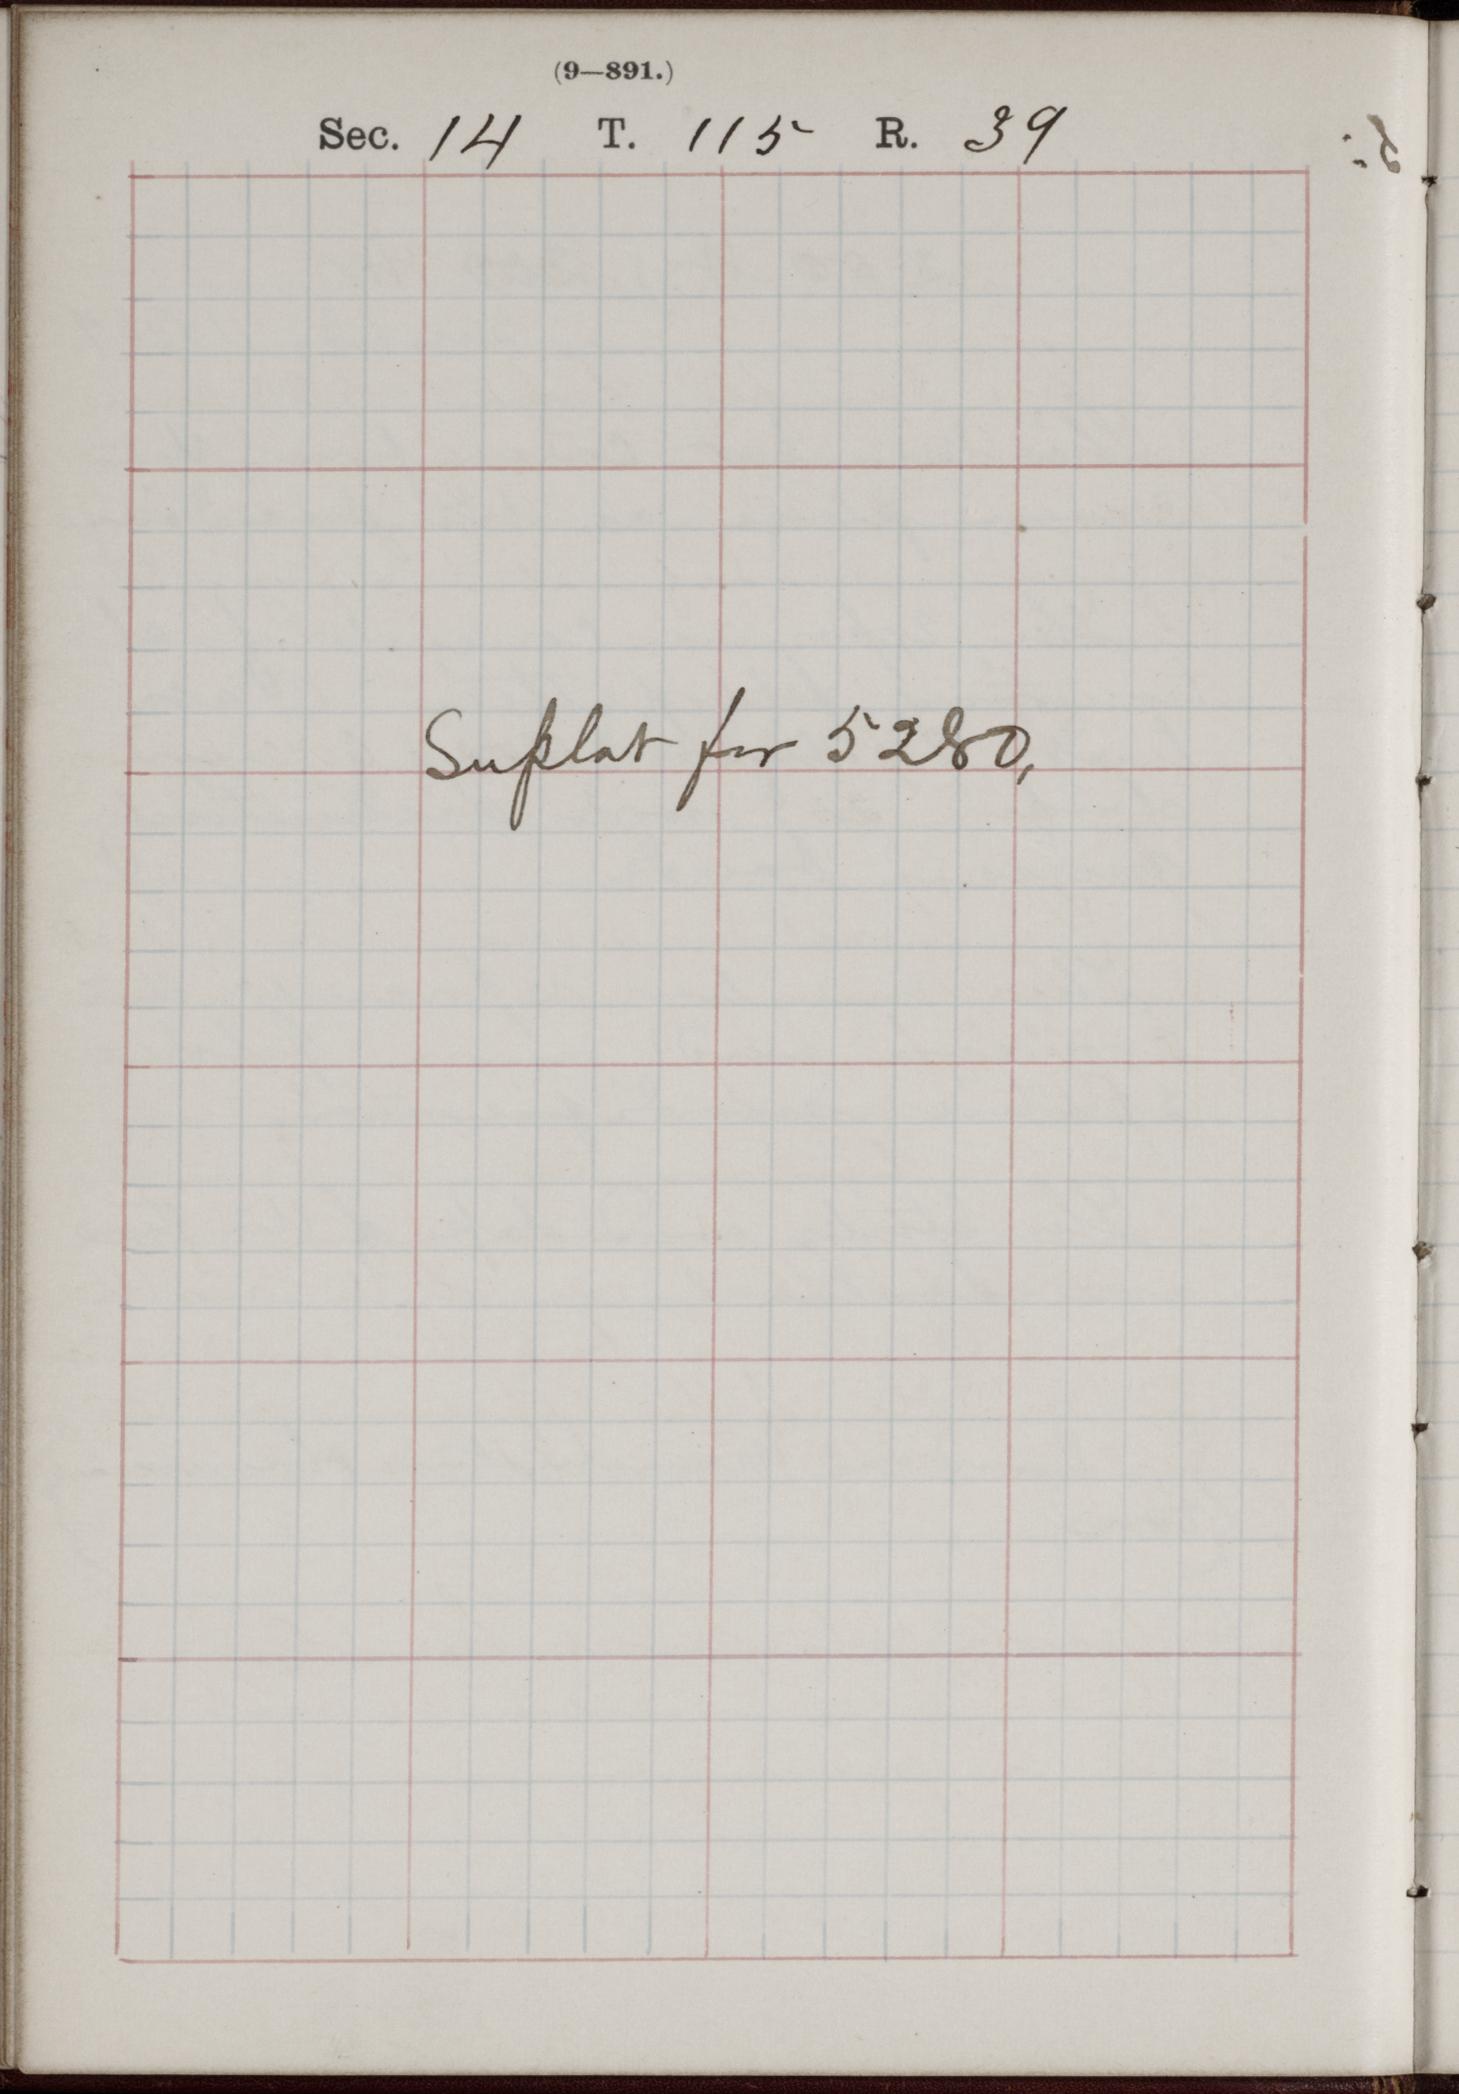 (9—891.)
Sec. 14 T. 115 R. 39
Suplat for 5280,